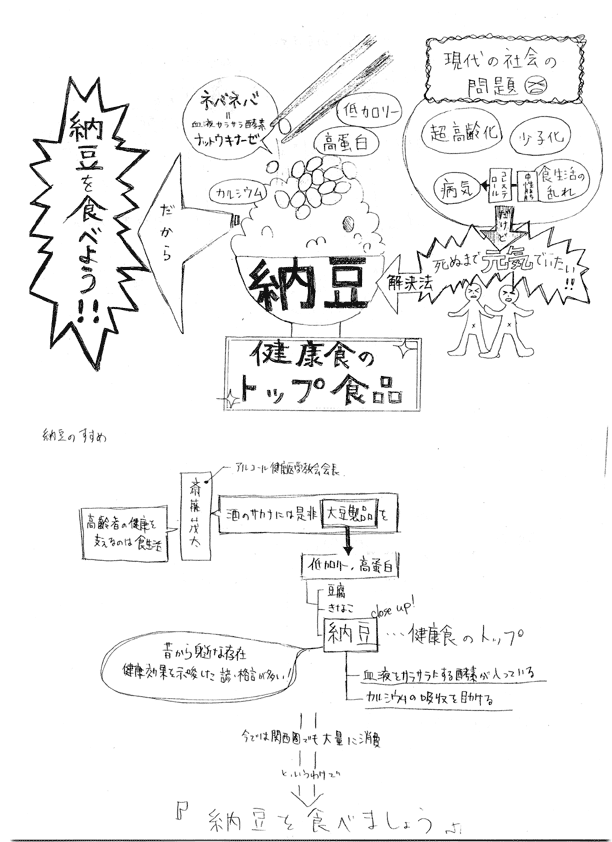 納豆を食べよう!!
だから
ネバネバ
=
血液サラサラ酵素
ナットウキナーゼ
低カロリー
高蛋白
カルシウム
納豆
健康食の
トップ食品
現代の社会の
問題
超高齢化
少子化
病気
コレステロール
中性脂肪
食生活の
乱れ
だけど
死ぬまで元気でいたい!!
解決法
納豆のすすめ
アルコール健康医学協会会長
斎藤茂太
高齢者の健康を
支えるのは食生活
酒のサカナには是非大豆製品を
低カロリー、高蛋白
豆腐
きなこ
close up!
納豆…健康食のトップ
昔から身近な存在
健康効果を示唆した諺・格言が多い!
血液をサラサラにする酵素が入っている
カルシウムの吸収を助ける
今では関西圏でも大量に消費
というわけで
『納豆を食べましょう』